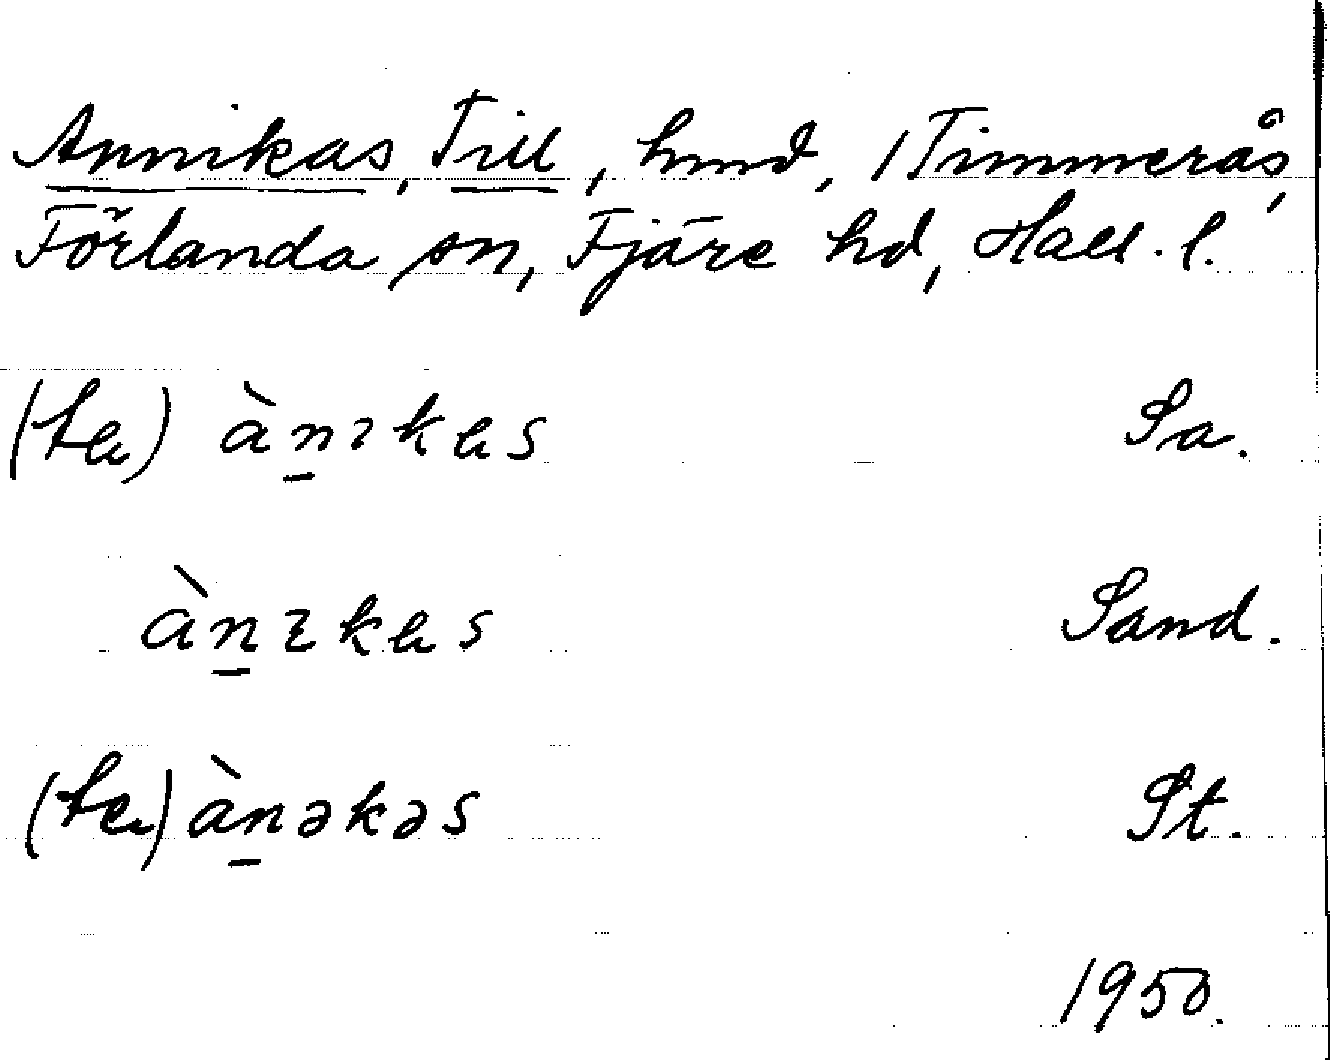 Annikas, Till, hmd, 1 Timmerås,
Förlanda sn, Fjäre hd, Hall. l.
(ta) ànıkas Sa.
ànɪkas Sand.
(ta) ànəkəs St.
1950.